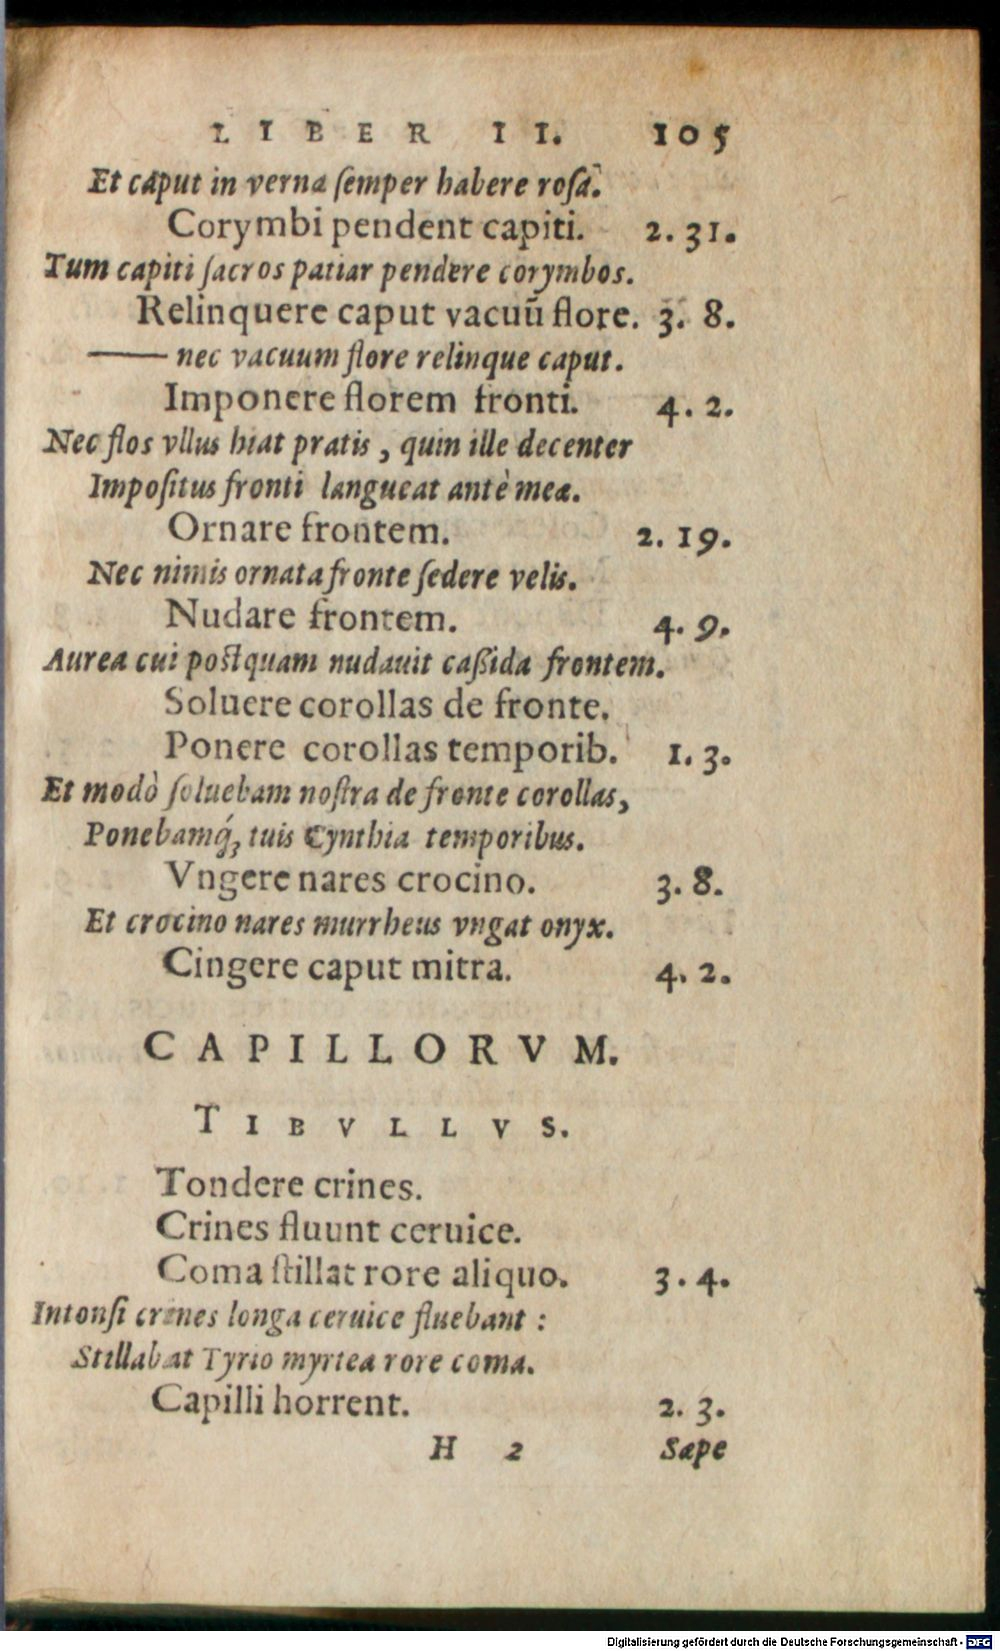 LIBER II. 105
Et caput in verna ſemper habere roſã.
Corymbi pendent capiti. 2. 31.
Tum capiti ſacros patiar pendere corymbos.
Relinquere caput vacuū flore. 3. 8.
—— nec vacuum flore relinque caput.
Imponere florem fronti. 4. 2.
Nec flos vllus hiat pratis, quin ille decenter
Impoſitus fronti langueat antè meæ.
Ornare frontem. 2. 19.
Nec nimis ornata fronte ſedere velis.
Nudare frontem. 4. 9.
Aurea cui poſtquam nudauit caßida frontem.
Soluere corollas de fronte.
Ponere corollas temporib. 1. 3.
Et modò ſoluebam noſtra de fronte corollas,
Ponebamq́; tuis Cynthia temporibus.
Vngere nares crocino. 3. 8.
Et crocino nares murrheus vngat onyx.
Cingere caput mitra. 4. 2.
CAPILLORVM.
TIBVLLVS.
Tondere crines.
Crines fluunt ceruice.
Coma ſtillat rore aliquo. 3. 4.
Intonſi crines longa ceruice fluebant :
Stillabat Tyrio myrtea rore coma.
Capilli horrent. 2. 3.
H 2 Sæpe
Digitalisierung gefördert durch die Deutsche Forschungsgemeinschaft - DFG